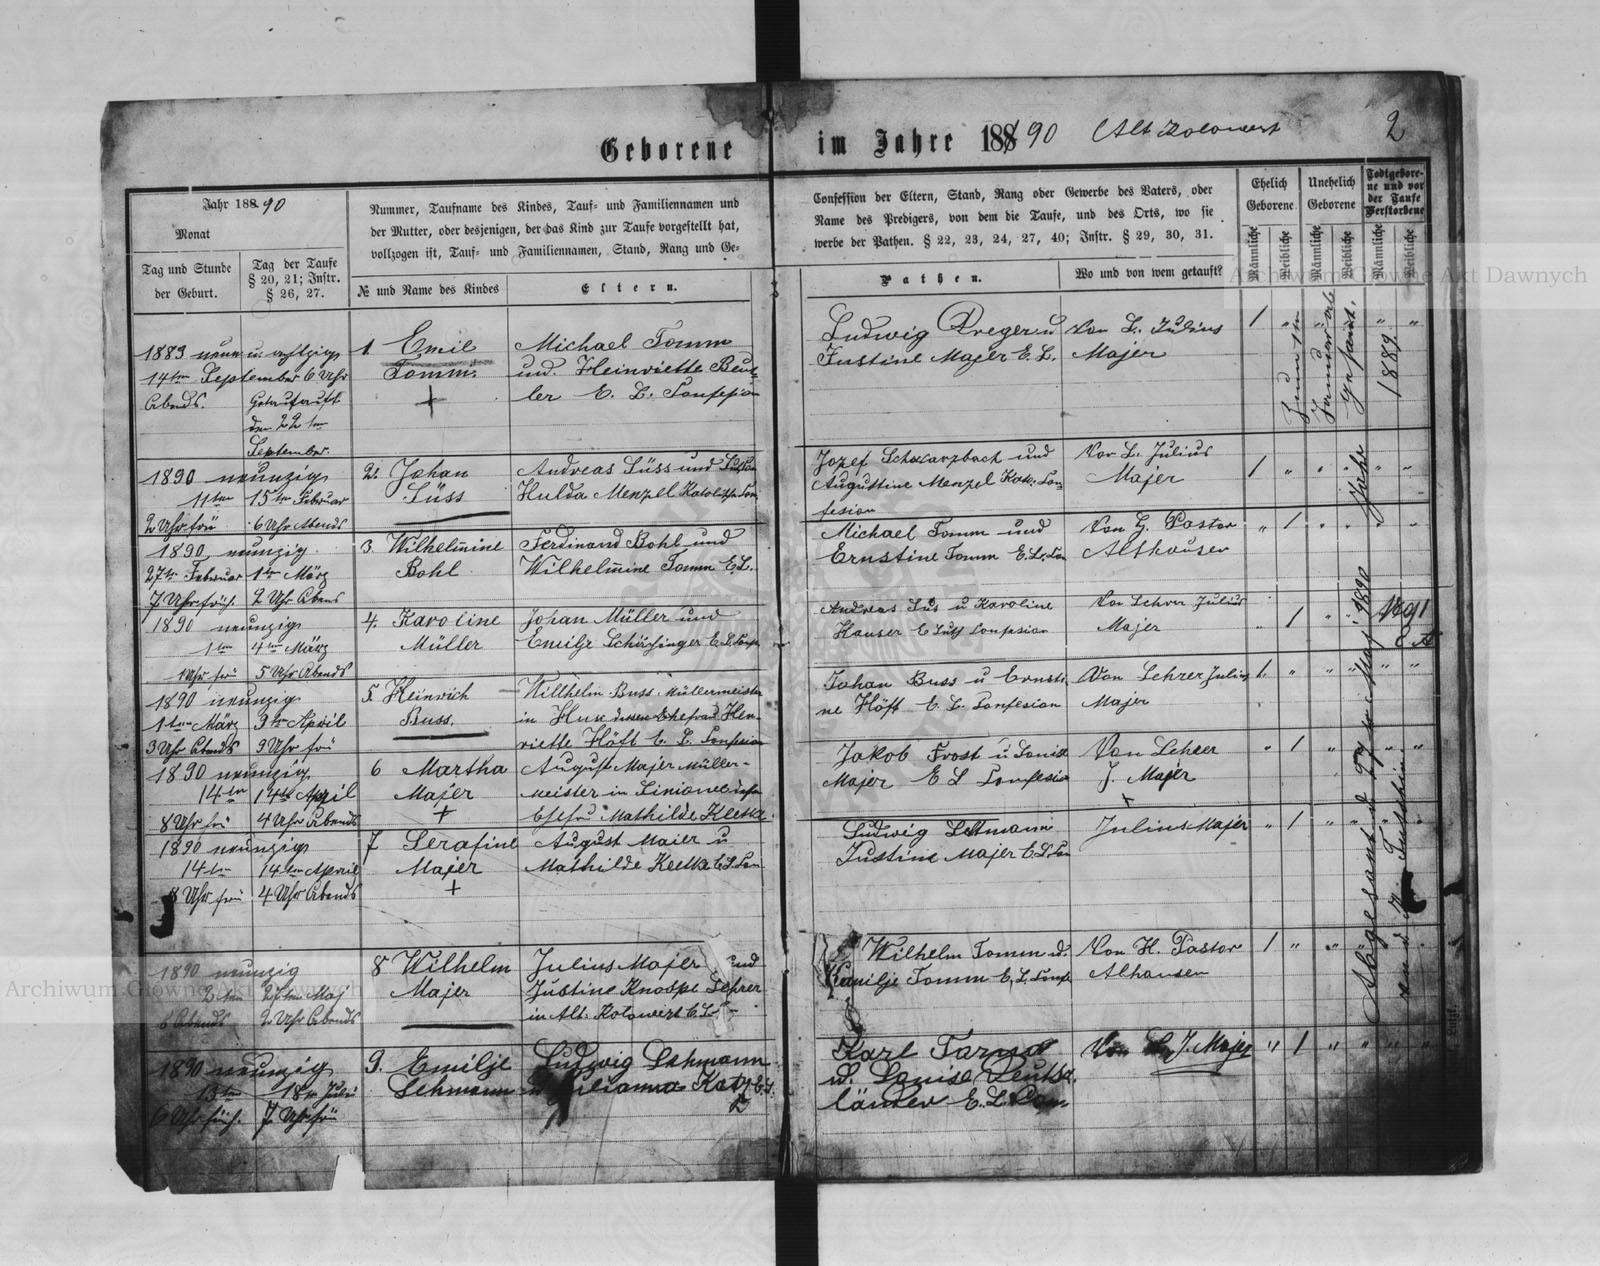 Geborene im Jahre 188 90 Alt Kolowert
2
Jahr 188 90
Monat
Tag und Stunde
der Geburt.
Tag der Taufe
§ 20, 21; Instr.
§ 26, 27.
Nummer, Taufname des Kindes, Tauf- und Familiennamen und
der Mutter, oder desjenigen, der das Kind zur Taufe vorgestellt hat,
vollzogen ist, Tauf- und Familiennamen, Stand, Rang und Ge-
№ und Name des Kindes
Eltern.
Confession der Eltern, Stand, Rang oder Gewerbe des Vaters, oder
Name des Predigers, von dem die Taufe, und des Orts, wo sie
werbe der Pathen. § 22, 23, 24, 27, 40; Instr. § 29, 30, 31.
Pathen.
Wo und von wem getauft?
Ehelich
Geborene
Unehelich
Geborene
Todtgebore-
ne und vor
der Taufe
Verstorbene
Männliche
Weibliche
Männliche
Weibliche
Männliche
Weibliche
1889 neun u. achtzig
14ten September 6 Uhr
Abends.
Getauft
den 22ten
September
1. Emil
Tomm.
Michael Tomm
und Heinriette Beut-
ler E. L. Confesion
Ludwig Dreger u
Justine Majer E. L.
Von L. Julius
Majer
1 " " " " "
1890 neunzig
11ten 15ten Februar
2 Uhr frü 6 Uhr Abends
2. Johan
Süss
Andreas Süss und
Hulda Menzel Katolisch Con
Jozef Schwarzbach und
Augustine Menzel Kat. Con-
fesion
Von L. Julius
Majer
1 " " " " "
1890 neunzig
27ten Februar 1ten März
7 Uhr früh. 2 Uhr Abens
3. Wilhelmine
Bohl
Ferdinand Bohl und
Wilhelmine Tomm E.L.
Michael Tomm und
Ernstine Tomm E.L. Con
Von H. Pastor
Althauser
" 1 " " "
1890 neunzig
1ten 4ten März
1 Uhr frü 5 Uhr Abends
4. Karoline
Müller
Johan Müller und
Emilje Schirfinger E.L. Confe
Andreas Süs u Karoline
Hauser E Luth Confesion
Von Lehrer Julius
Majer
" 1 " "
1890 neunzig
1ten März 9ten April
3 Uhr Abends 9 Uhr frü
5. Heinrich
Buss.
Willhelm Buss Müllermeister
in Huk dessen Ehefrau Hen-
riette Höft E. L. Confesion
Johan Buss u Ernsti-
ne Höft E. L. Confesion
Von Lehrer Julius
Majer
1. " " " " "
1890 neunzig
14ten 14ten April
8 Uhr frü 4 Uhr Abends
6 Martha
Majer
August Majer Müller-
meister in
Ehefrau Mathilde Kletke
Jakob Frost u Louise
Majer E L Confesion
Von Lehrer
J. Majer
" 1 " " " "
1890 neunzig
14ten 14ten April
8 Uhr frü 4 Uhr Abends
7 Serafine
Majer
August Maier u
Mathilde Kletke E.L. Con
Ludwig Lettmann
Justine Majer E.L. Con
Julius Majer
" 1 " " " "
1890 neunzig
2ten 27ten Maj
6 Abends 2 Uhr Abends
8 Wilhelm
Majer
Julius Majer und
Justine Knospe Lehrer
in Alt. Kolowert E.L.
Wilhelm Tomm u.
Emilje Tomm E. L. Confe
Von H. Pastor
Alhauser
1 " " "
1890 neunzig
13ten 18ten Juli
6 Uhr früh. 7 Uhr frü
9. Emilje
Lehmann
Ludwig Lehmann
u. Julianna
Karl
u. Louise Deutsch-
länder E. L. Con-
Von L. J. Majer
" 1 " " " "
Zum 1ten
Januar ab
gesant.
1889
Jahr
Abgesant d 27ten Maj 1890
Tutschin
Archiwum Główne Akt Dawnych
Archiwum Główne Akt Dawnych